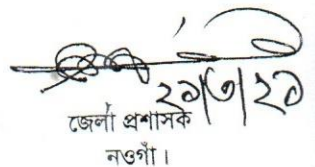 ২১/৩/২১
জেলা প্রশাসক
নওগাঁ।